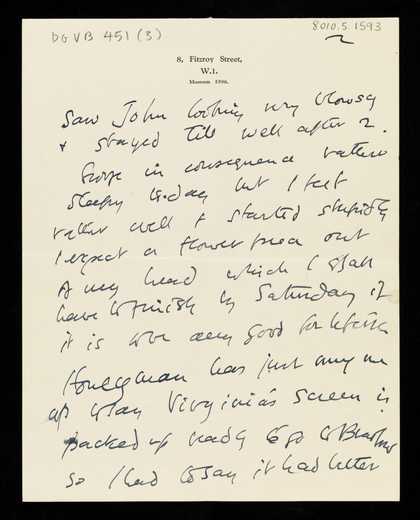 DGVB 451 (3)
8010.5.1593
2
8, Fitzroy Street,
W.1.
Museum
Saw John looking very blowsy
& stayed till well after 2.
in consequence rather
sleepy to-day but I feel
rather well & started stupidly
I expect a flower piece out
of my head which I shall
have to finish by Saturday if
it is to be any good for
Honeyman has just rung me
up to say Virginia's screen is
packed up ready to go to
so I had to say it had better